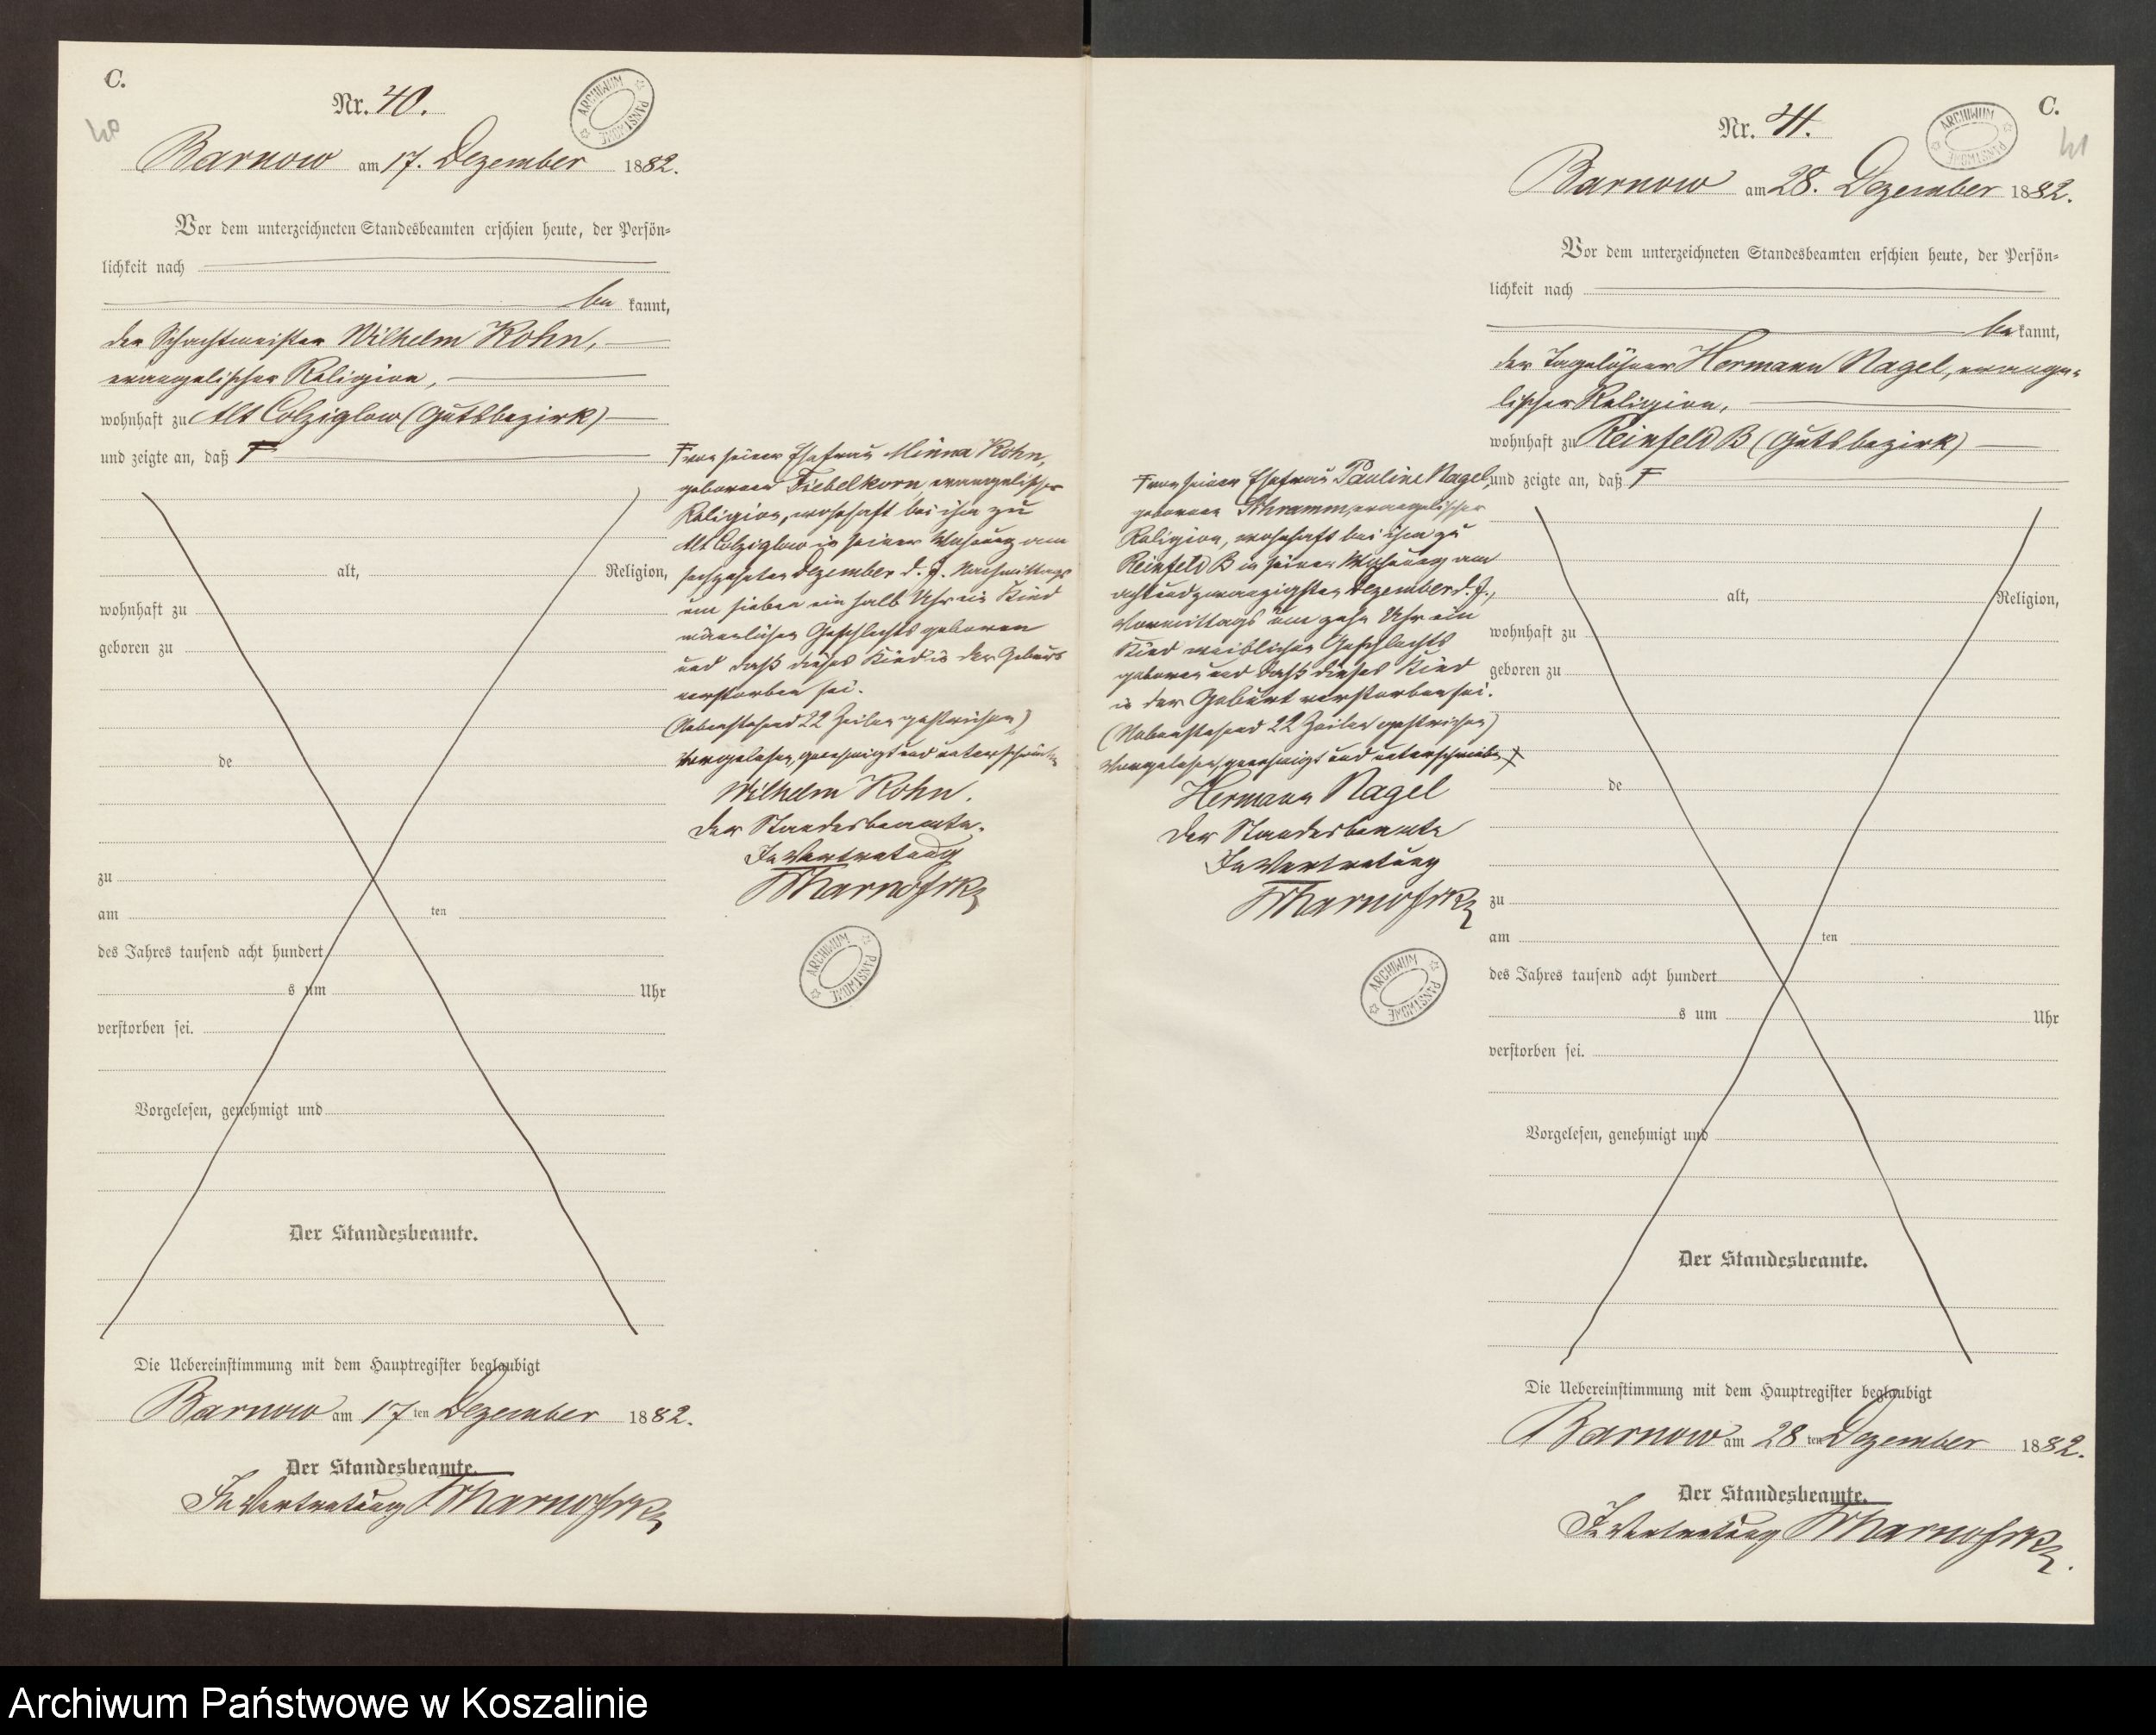 C.
Nr. 40.
40
ARCHIWUM PAŃSTWOWE
Barnow am 17. Dezember 1882.
Vor dem unterzeichneten Standesbeamten erschien heute, der Persön-
lichkeit nach
be kannt,
der Schachtmeister Wilhelm Kohn,
evangelischer Religion,
wohnhaft zu Alt Colziglow (Gutsbezirk)
und zeigte an, daß F
F von seiner Ehefrau Minna Kohn,
geborenen Fiebelkorn, evangelischer
Religion, wohnhaft bei ihm zu
Alt Colziglow in seiner Wohnung am
sechszehnten Dezember d. J. Nachmittags
um sieben ein halb Uhr ein Kind
männlichen Geschlechts geboren
und daß dieses Kind in der Geburt
verstorben sei.
(Nebenstehend 22 Zeilen gestrichen)
Vorgelesen, genehmigt und unterschrieben
Wilhelm Kohn.
Der Standesbeamte.
In Vertretung
ARCHIWUM PAŃSTWOWE
alt, Religion,
wohnhaft zu
geboren zu
de
zu
am ten
des Jahres tausend acht hundert
s um Uhr
verstorben sei.
Vorgelesen, genehmigt und
Der Standesbeamte.
Die Uebereinstimmung mit dem Hauptregister beglaubigt
Barnow am 17 ten Dezember 1882.
Der Standesbeamte.
In Vertretung
C.
Nr. 41.
41
ARCHIWUM PAŃSTWOWE
Barnow am 28. Dezember 1882.
Vor dem unterzeichneten Standesbeamten erschien heute, der Persön-
lichkeit nach
be kannt,
der Tagelöhner Hermann Nagel, evange-
lischer Religion,
wohnhaft zu Reinfeld B (Gutsbezirk)
und zeigte an, daß F
F von seiner Ehefrau Pauline Nagel,
geborenen Schramm, evangelischer
Religion, wohnhaft bei ihm zu
Reinfeld B in seiner Wohnung am
achtundzwanzigsten Dezember d. J.,
Vormittags um zehn Uhr ein
Kind weiblichen Geschlechts
geboren und daß dieses Kind
in der Geburt verstorben sei.
(Nebenstehend 22 Zeilen gestrichen)
Vorgelesen, genehmigt und unterschrieben
Hermann Nagel
Der Standesbeamte
In Vertretung
ARCHIWUM PAŃSTWOWE
alt, Religion,
wohnhaft zu
geboren zu
de
zu
am ten
des Jahres tausend acht hundert
s um Uhr
verstorben sei.
Vorgelesen, genehmigt und
Der Standesbeamte.
Die Uebereinstimmung mit dem Hauptregister beglaubigt
Barnow am 28 ten Dezember 1882.
Der Standesbeamte.
In Vertretung
Archiwum Państwowe w Koszalinie